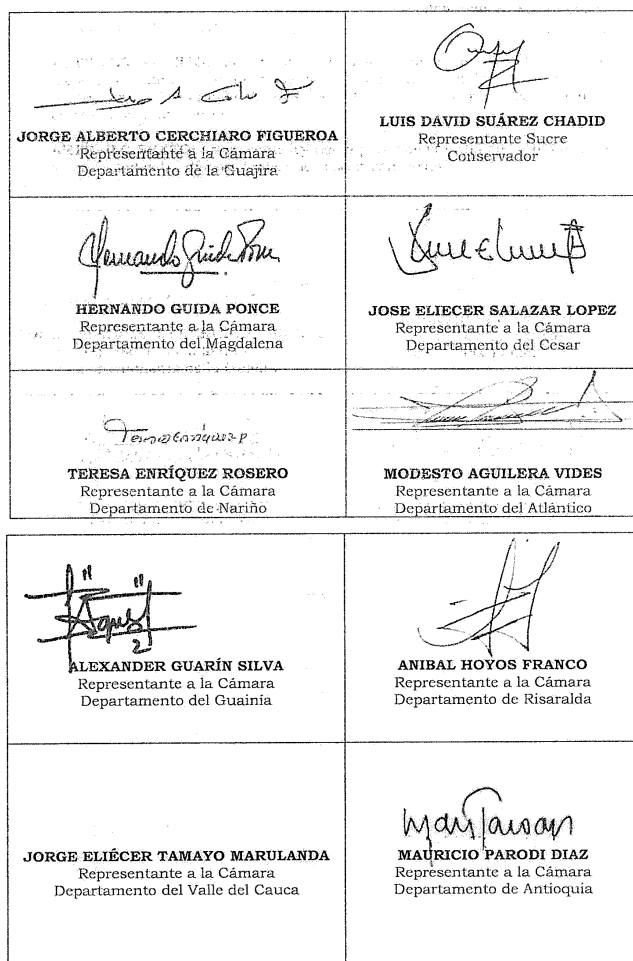 JORGE ALBERTO CERCHIARO FIGUEROA
Representante a la Cámara
Departamento de la Guajira
LUIS DAVID SUÁREZ CHADID
Representante Sucre
Conservador
Hernando Guida Ponce
HERNANDO GUIDA PONCE
Representante a la Cámara
Departamento del Magdalena
JOSE ELIECER SALAZAR LOPEZ
Representante a la Cámara
Departamento del Cesar
TERESA ENRÍQUEZ ROSERO
Representante a la Cámara
Departamento de Nariño
MODESTO AGUILERA VIDES
Representante a la Cámara
Departamento del Atlántico
ALEXANDER GUARÍN SILVA
Representante a la Cámara
Departamento del Guainía
ANIBAL HOYOS FRANCO
Representante a la Cámara
Departamento de Risaralda
JORGE ELIÉCER TAMAYO MARULANDA
Representante a la Cámara
Departamento del Valle del Cauca
MAURICIO PARODI DIAZ
Representante a la Cámara
Departamento de Antioquia